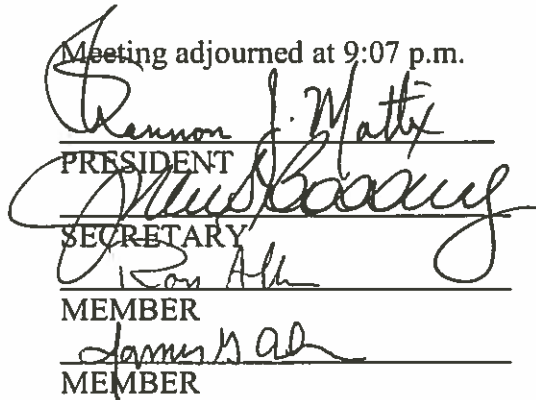 Meeting adjourned at 9:07 p.m.
Shannon J. Mattix
PRESIDENT
SECRETARY
Ron
MEMBER
James
MEMBER